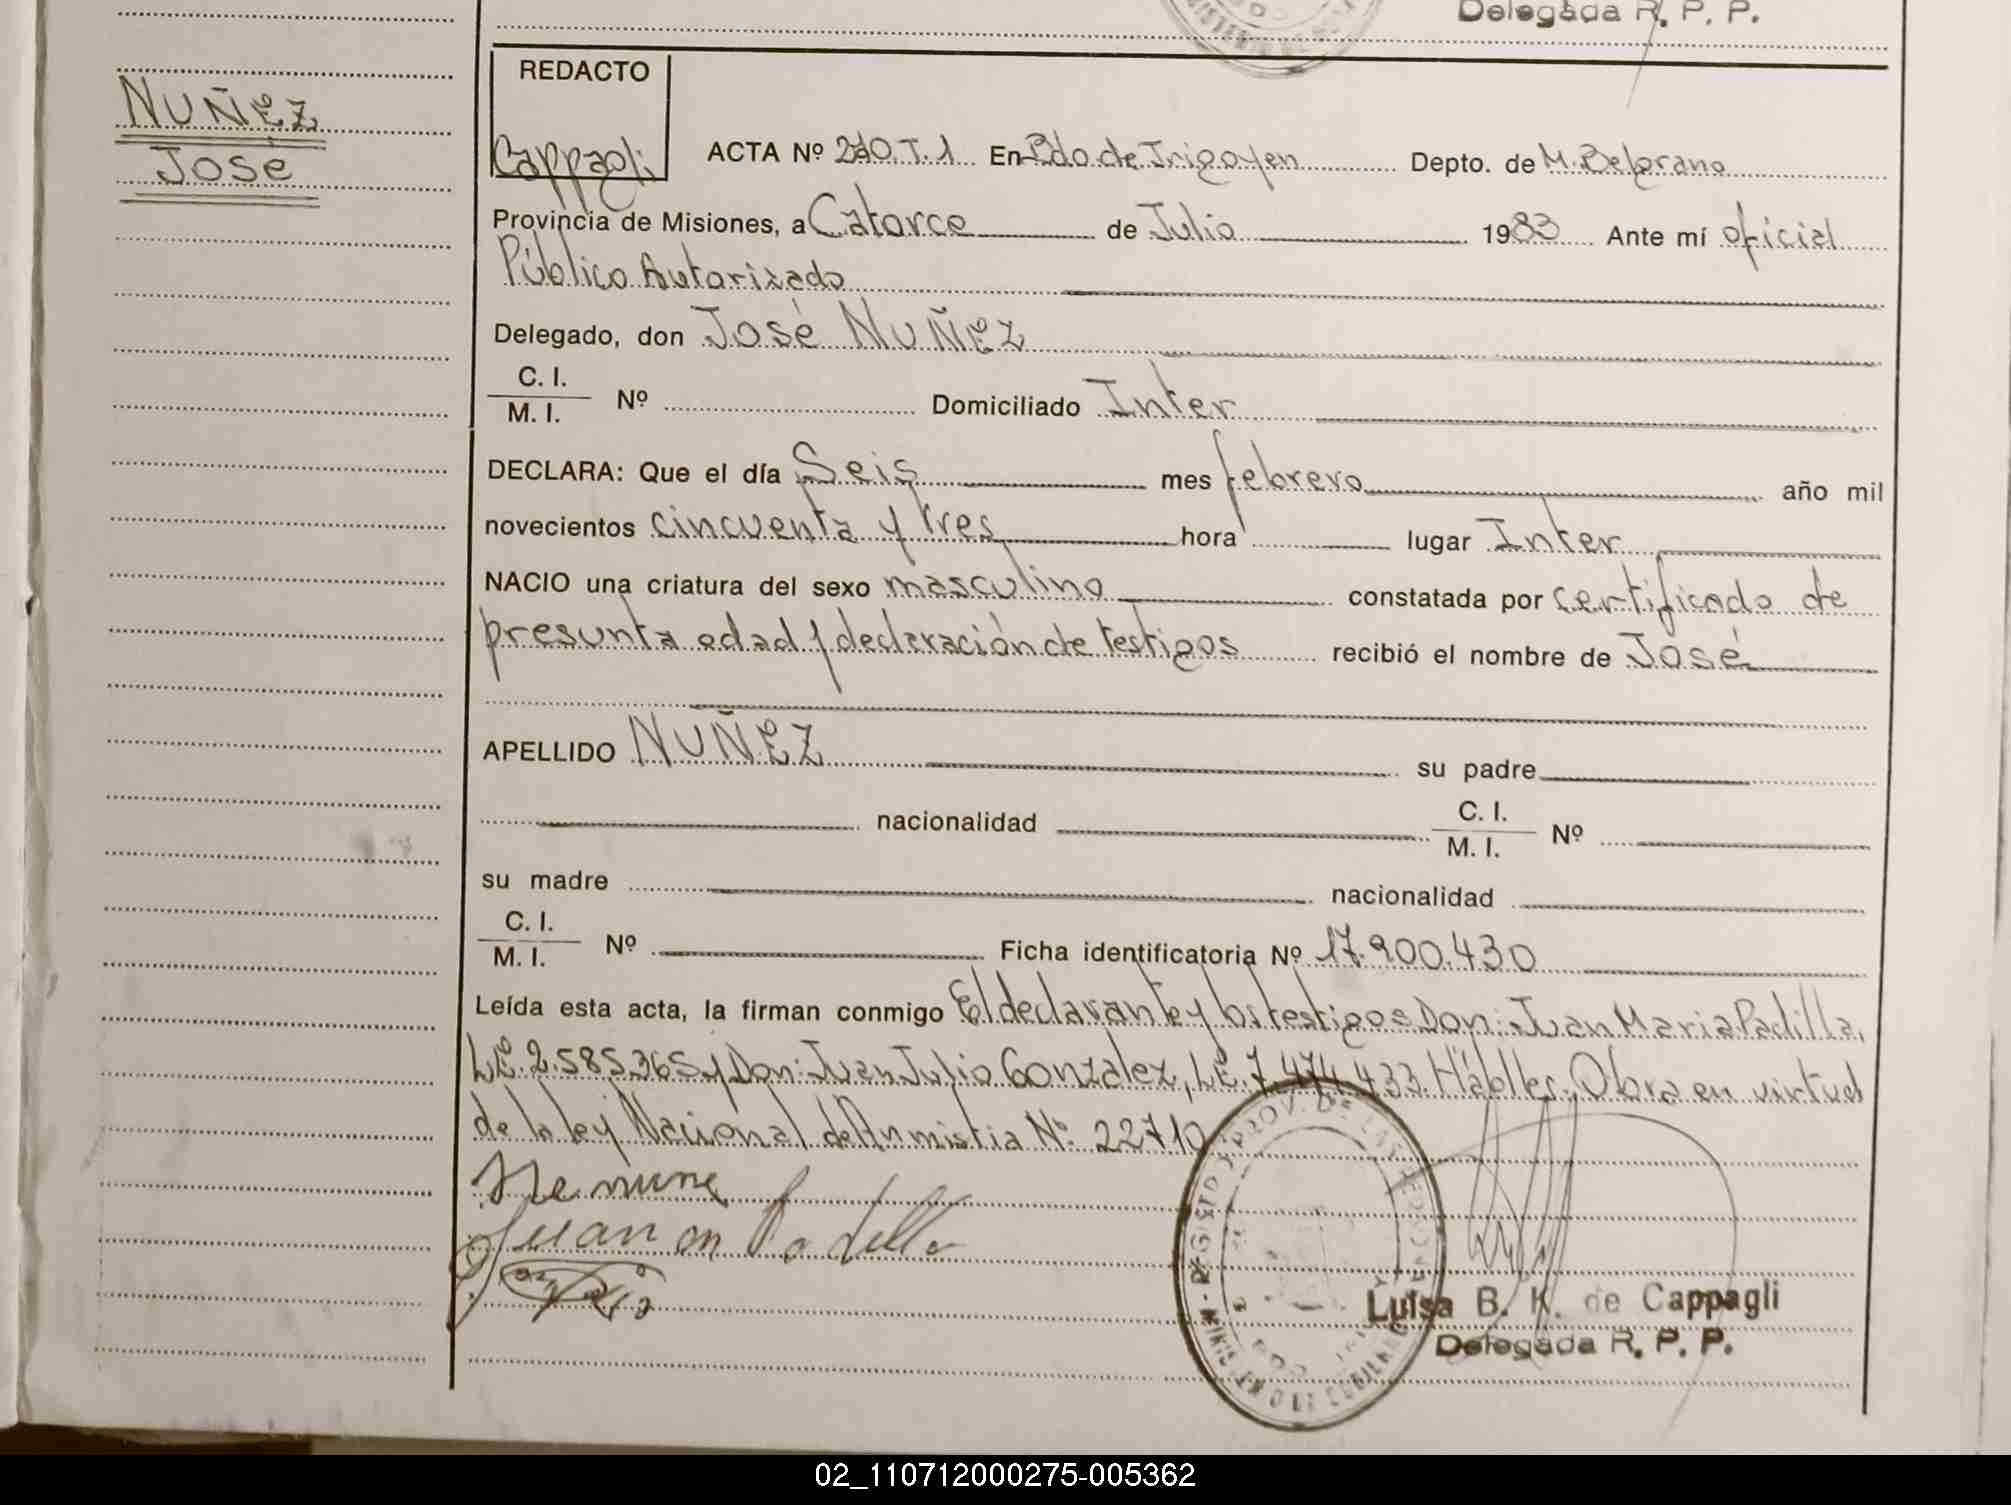 Delegada R. P. P.
NUÑEZ
José
REDACTO
Cappagli
ACTA Nº 210. T. 1 En Bdo de Irigoyen Depto. de M. Belgrano
Provincia de Misiones, a Catorce de Julio 1983 Ante mí oficial
Público Autorizado
Delegado, don José NUÑEZ
C. I.
M. I. Nº Domiciliado Inter
DECLARA: Que el día Seis mes febrero año mil
novecientos cincuenta y tres hora lugar Inter
NACIO una criatura del sexo masculino constatada por certificado de
presunta edad y declaración de testigos recibió el nombre de José
APELLIDO NUÑEZ su padre
nacionalidad C. I.
M. I. Nº
su madre nacionalidad
C. I.
M. I. Nº Ficha identificatoria Nº 17.900.430
Leída esta acta, la firman conmigo El declarante y los testigos Don: Juan Maria Padilla,
LE. 2.585.365 y Don: Juan Julio Gonzalez, LE. 7.474.433. Hábiles. Obra en virtud
de la ley Nacional de Anmistia Nº 22710
Juan m Padilla
Luisa B. K. de Cappagli
Delegada R. P. P.
02_110712000275-005362